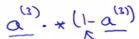 a⁽³⁾ .* (1-a⁽³⁾)